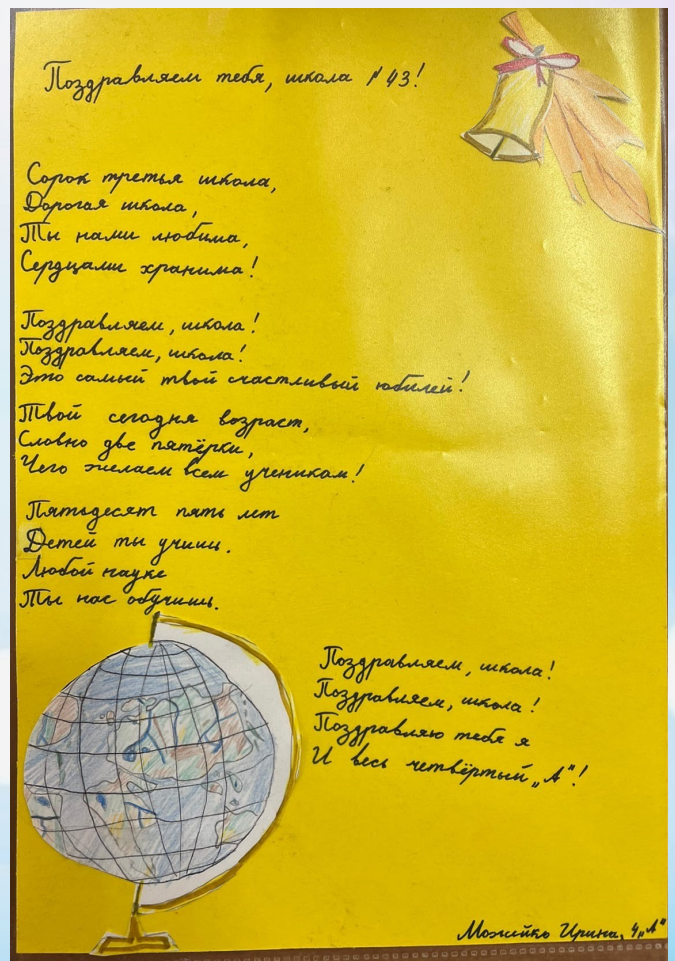 Поздравляем тебя, школа №43!
Сорок третья школа,
Дорогая школа,
Ты нами любима,
Сердцами хранима!
Поздравляем, школа!
Поздравляем, школа!
Это самый твой счастливый юбилей!
Твой сегодня возраст,
Словно две пятёрки,
Чего желаем всем ученикам!
Пятьдесят пять лет
Детей ты учишь.
Любой науке
Ты нас обучишь.
Поздравляем, школа!
Поздравляем, школа!
Поздравляю тебя я
И весь четвёртый „А“!
Можейко Ирина, 4„А“